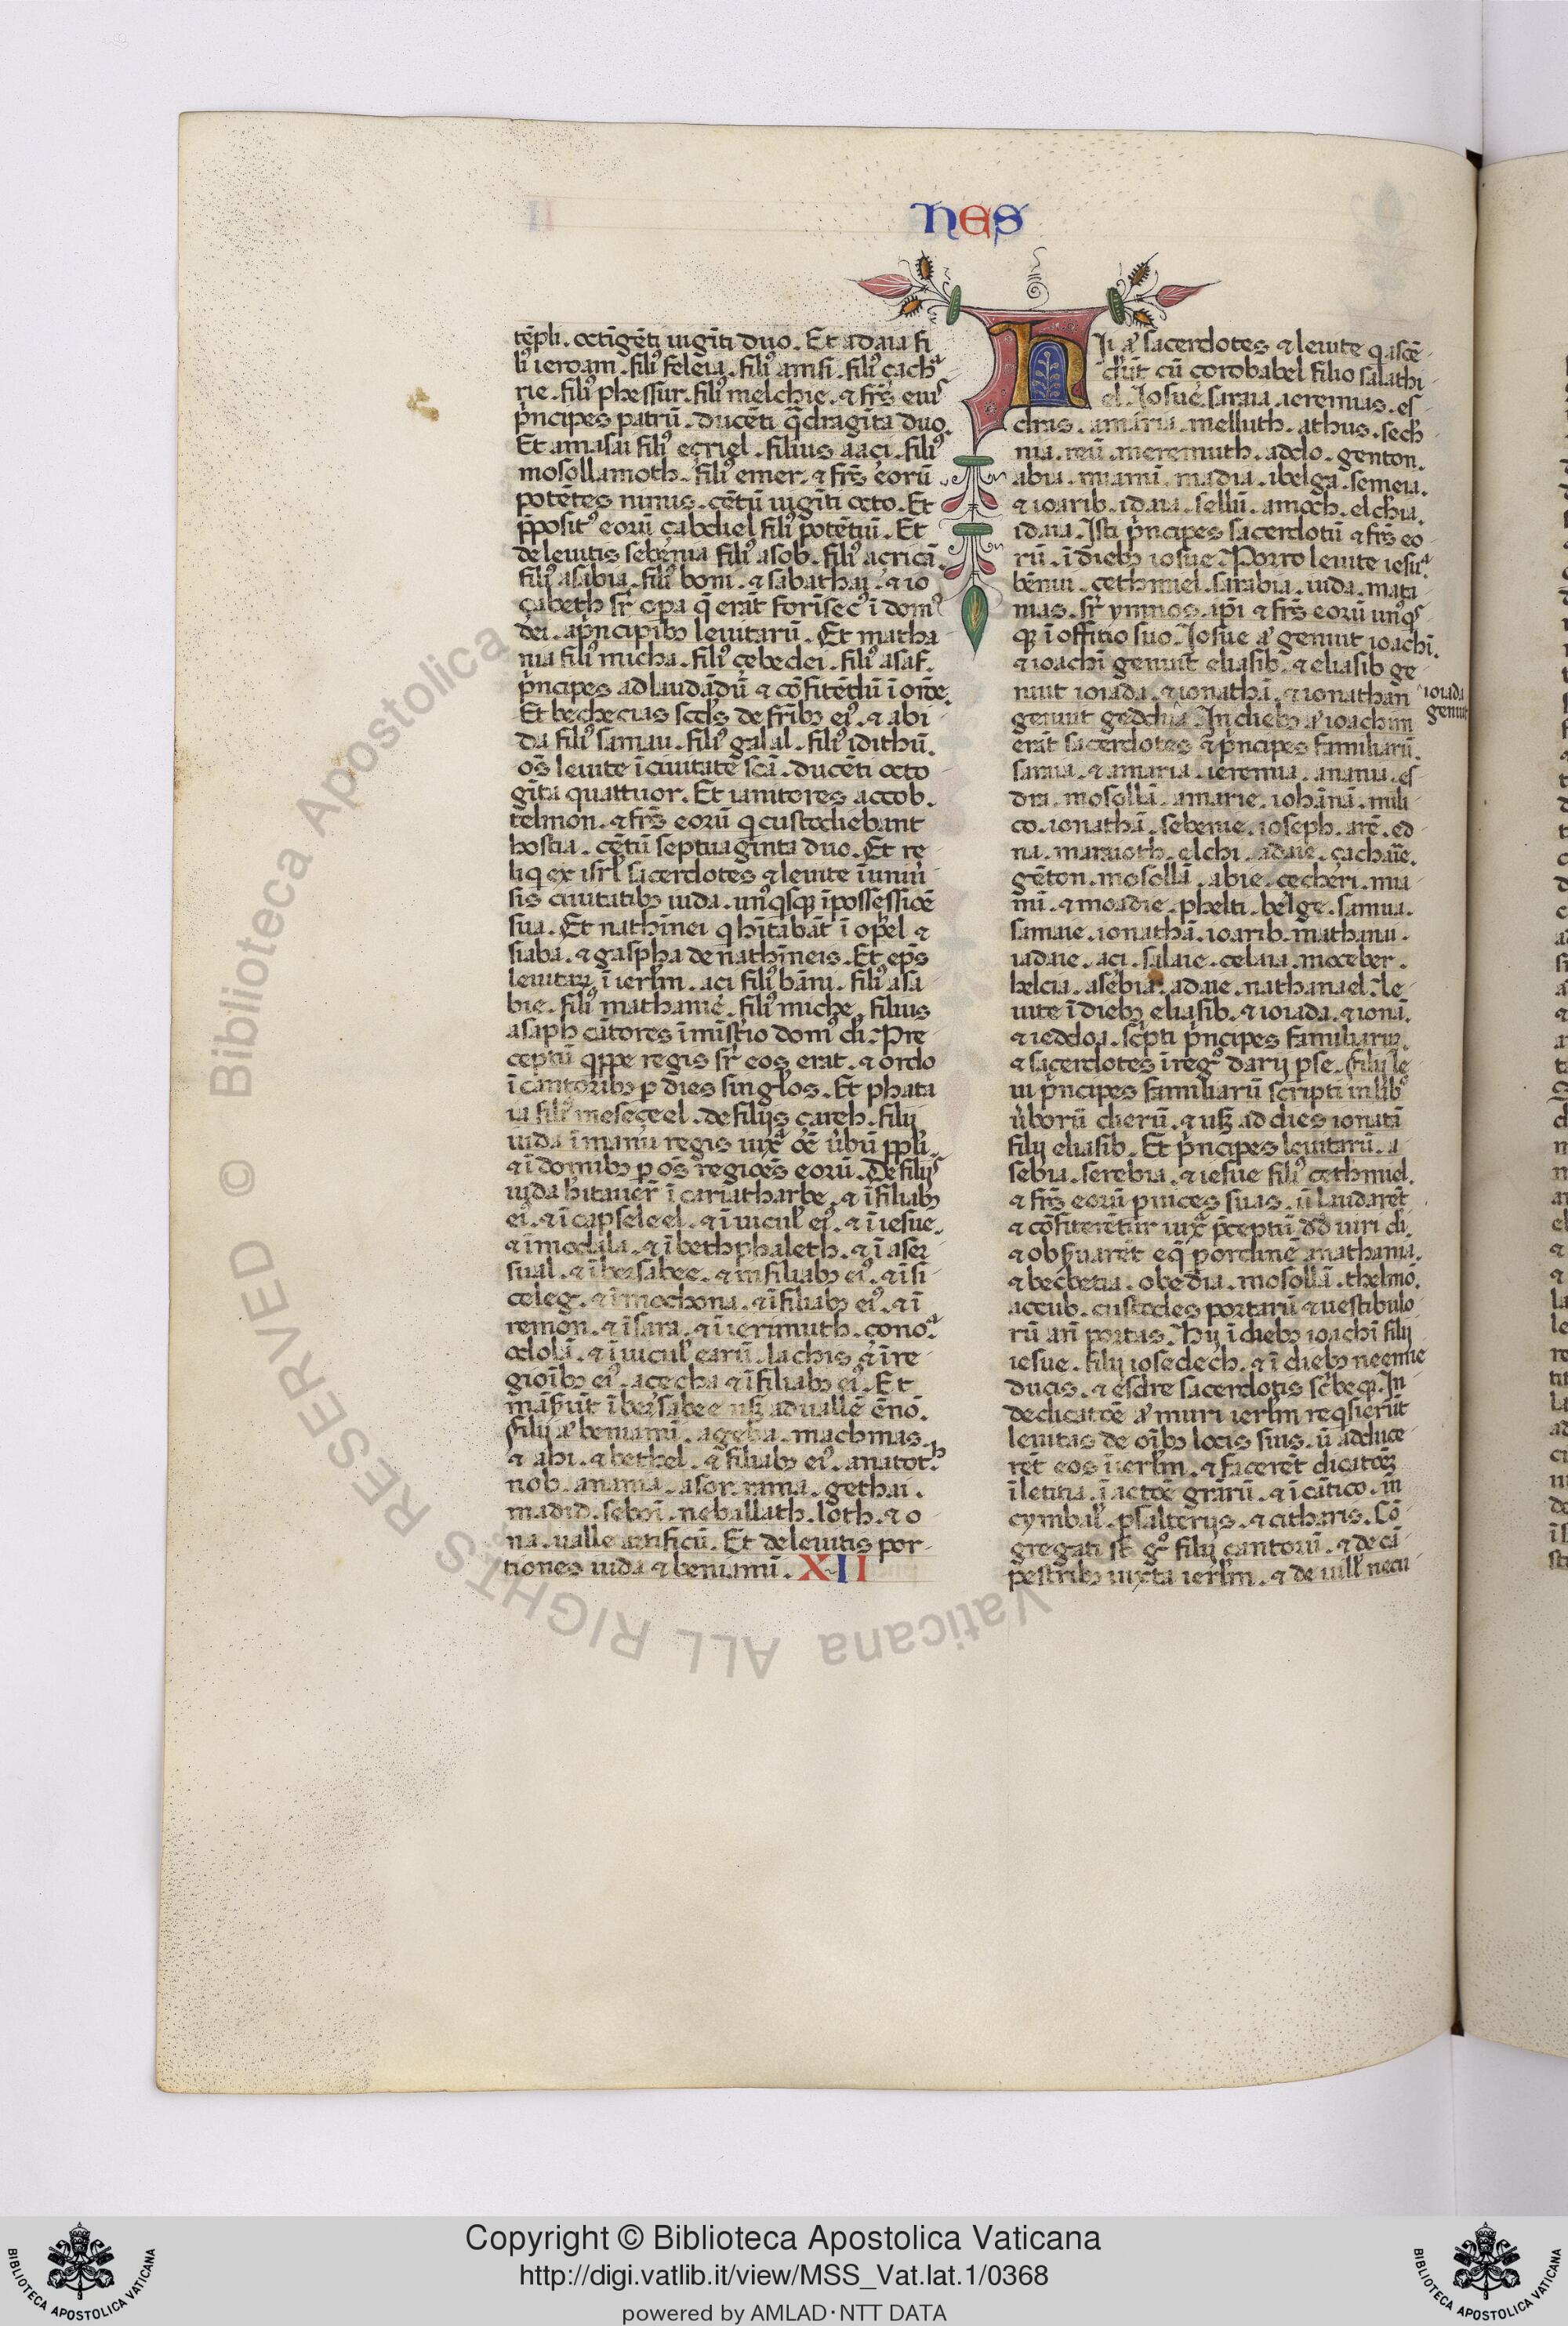 NES
tēpli. octigēti uigīti duo. Et adaia fi
liꝰ ieroam. filiꝰ feleia. filiꝰ amsi. filiꝰ çachª
rie. filiꝰ phessur. filiꝰ melchie. ⁊ frēs eiuˢ
p̄ncipes patrū. ducēti q̄dragīta duo.
Et amasai filiꝰ eçriel. filius aaci. filiꝰ
mosollamoth. filiꝰ emer. ⁊ frēs eorū
potētes nimis. cētū uigīti octo. Et
p̄positꝰ eorū çabdiel filiꝰ potētuī. Et
de leuitis sebenia filiꝰ asob. filiꝰ açricā.
filiꝰ asabia. filiꝰ boni. ⁊ sabathai. ⁊ io
çabeth sr̄ opa q̄ erāt forīsecꝰ ī domꝰ
dei. a p̄ncipibꝫ leuitarū. Et matha
nia filiꝰ micha. filiꝰ çebedei. filiꝰ asaf.
p̄nceps ad laudādū ⁊ cōfitēdū ī orōe.
Et becbecias scd̄s de fr̄ibꝫ eiꝰ. ⁊ abi
da filiꝰ samau. filiꝰ galal. filiꝰ idithū.
oēs leuite ī ciuitate scā. ducēti octo
gīta quattuor. Et ianitores accob.
telmon. ⁊ frēs eorū q custodiebant
hostia. cētū septuaginta duo. Et re
liq ex isrl̄ sacerdotes ⁊ leuite ī uniū
sis ciuitatibꝫ iuda. unꝰqsqꝫ ī possessiōe
sua. Et nathinei q hītabāt ī opel ⁊
siaba. ⁊ gaspha de nathīneis. Et epс̄
leuitarꝝ ī ierl̄m. açi filiꝰ bāni. filiꝰ asa
bie. filiꝰ mathanie. filiꝰ miche. filius
asaph cātores ī mīst̄io domꝰ dī. Pre
ceptū qppe regis sr̄ eos erat. ⁊ ordo
ī cantoribꝫ p dies sing̃los. Et phata
ia filiꝰ meseçeel. de filijs çareh. filij
iuda ī manu regis iuxª oē ūbū ppl̄i.
⁊ ī domibꝫ p oēs regiōes eorū. De filijˢ
iuda hītauer̄ ī cariatharbe. ⁊ ī filiabꝫ
eiꝰ. ⁊ ī capseleel. ⁊ ī uicul̄ eiꝰ. ⁊ ī iesue.
⁊ ī modala. ⁊ ī bethphaleth. ⁊ ī aser
sual. ⁊ ī bersabee. ⁊ in filiabꝫ eiꝰ. ⁊ ī si
celeg. ⁊ ī mochona. ⁊ ī filiabꝫ eiꝰ. ⁊ ī
remon. ⁊ ī sara. ⁊ ī ierimuth. çonoª
odolā. ⁊ ī uicul̄ earū. lachis ⁊ ī re
gioībꝫ eiꝰ. açecha ⁊ ī filiabꝫ eiꝰ. Et
māsūt ī bersabee usqꝫ ad uallē ēnō.
Filij aꝰ beniamī. a geba. machmas.
⁊ ahi. ⁊ bethel. ⁊ filiabꝫ eiꝰ. anatotʰ.
nob. anania. asor. rama. gethai.
madid. seboī. neballath. loth. ⁊ o
na. ualle artificū. Et de leuitis por
tiones iuda ⁊ beniamī. XII
HIi aꝰ sacerdotes ⁊ leuite q ascē
derūt cū çorobabel filio salathi
el. ⁊ Iosue. saraia. ieremias. es
dras. amaria. melluth. athus. sech
nia. reū. meremuth. addo. genton.
abia. miamī. madia. ibelga. semeia.
⁊ ioarib. idaia. sellū. amoch. elchia.
idaia. Isti p̄ncipes sacerdotū ⁊ frēs eo
rū. ī diebꝫ iosue. Porro leuite iesuª.
bēnui. çethmiel. sarabia. iuda. mata
nias. sr̄ ymnos. ip̄i ⁊ frēs eorū unꝰqˢ
qꝫ ī offitio suo. Iosue aꝰ genuit ioachī.
⁊ ioachī genuit eliasib. ⁊ eliasib ge
nuit ioiada. ⁊ ionathā. ⁊ ionathan
ioiada
genuit
genuit geddua. In diebꝫ aꝰ ioachim
erāt sacerdotes ⁊ p̄ncipes familiarū.
saraia. ⁊ amaria. ieremia. anania. es
dra. mosollā. amarie. iohānā. mili
co. ionathā. sebenie. ioseph. arē. ed
na. maraioth. elchi. adaie. çachaīe.
gēton. mosollā. abie. çecheri. mia
mī. ⁊ moadie. phelti. belge. samua.
samaie. ionathā. ioarib. mathanai.
iadaie. açi. salaie. celaia. moc eber.
helcia. asebia. adaie. nathanael. Le
uite ī diebꝫ eliasib. ⁊ ioiada. ⁊ ionā.
⁊ ieddoa. scpti p̄ncipes familiarum.
⁊ sacerdotes ī regº darij pse. Filij le
ui p̄ncipes familiarū scripti in libº
ūborū dierū. ⁊ usqꝫ ad dies ionatā
filij eliasib. Et p̄ncipes leuitarū. a
sebia. serebia. ⁊ iesue filiꝰ cethmiel.
⁊ frēs eorū p uices suas. ū laudarēt
⁊ cōfiterētur iuxª p̄ceptū dd̄ uiri dī.
⁊ obs̄uarēt eq̄ p ordinē mathania.
⁊ becbetia. obedia. mosollā. thelmō.
accub. custodes portarū ⁊ uestibulo
rū an̄ portas. Hij ī diebꝫ ioachī filij
iesue. filij iosedech. ⁊ ī diebꝫ neemie
ducis. ⁊ esdre sacerdotis scͥbeqꝫ. In
dedicatōe aꝰ muri ierl̄m reqsierūt
leuitas de oībꝫ locis suis. ū adduce
rēt eos ī ierl̄m. ⁊ facerēt dicatōeꝫ
ī letitia. ī actōe grārū. ⁊ ī cātico. in
cymbal̄. psalterijs. ⁊ citharis. Cō
gregati st̄ gº filij cantorū. ⁊ de cā
pestribꝫ iuxta ierl̄m. ⁊ de uill̄ netu
© Biblioteca Apostolica Vaticana ALL RIGHTS RESERVED
Copyright © Biblioteca Apostolica Vaticana
http://digi.vatlib.it/view/MSS_Vat.lat.1/0368
powered by AMLAD·NTT DATA
BIBLIOTECA APOSTOLICA VATICANA
BIBLIOTECA APOSTOLICA VATICANA